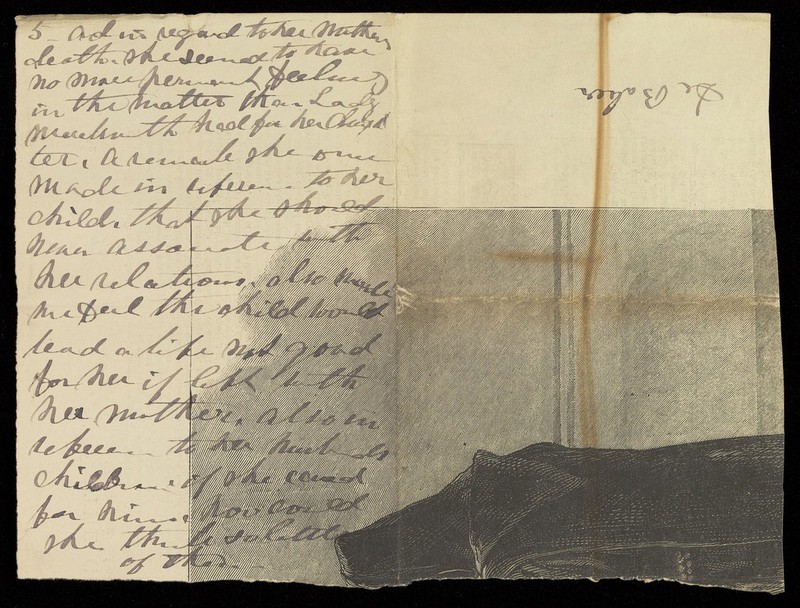 5 - and in regard to her Mothers
death. she seemed to have
no more permanent feeling
in the matter than Lady
had for her daugh
ter. A remark she once
made in referen to her
child. that she should
never associate with
her relations. also made
me feel the child would
lead a life not good
for her if left with
her mother. also in
referen to her husbands
children if she cared
for him. how could
she think so little
of them.
Dr Baker